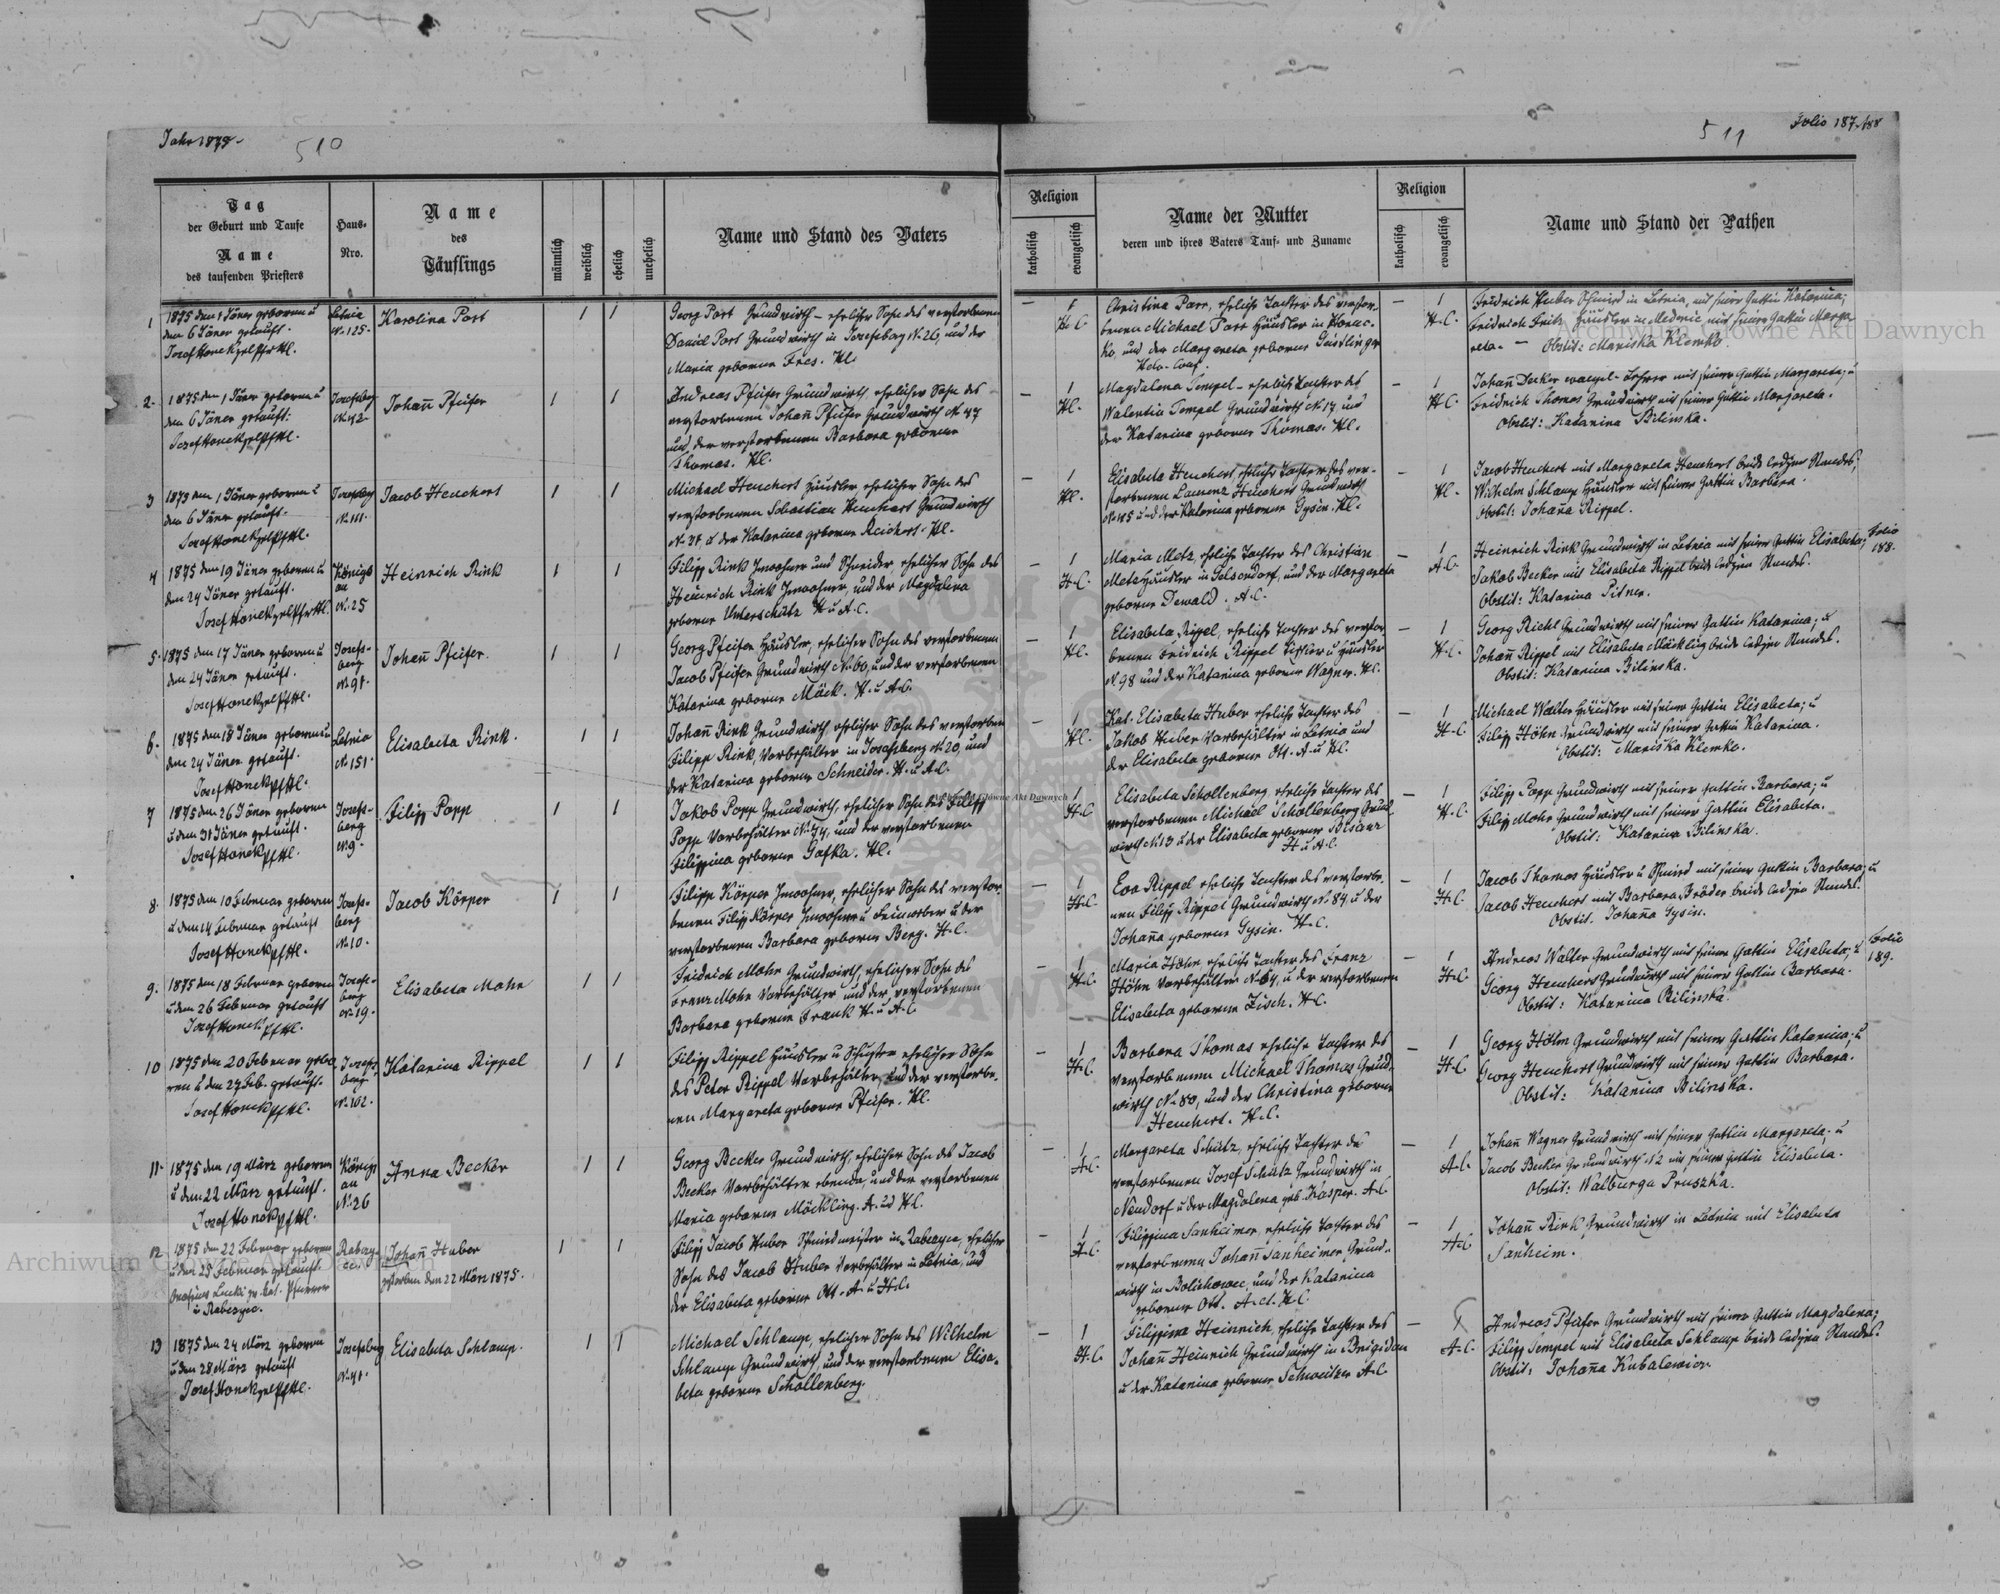 Jahr 1875.
510
511
Folio 187. 188
Tag
der Geburt und Taufe
Name
des taufenden Priesters
Haus-
Nro.
Name
des
Täuflings
männlich
weiblich
ehelich
unehelich
Name und Stand des Vaters
Religion
katholisch
evangelisch
Name der Mutter
deren und ihres Vaters Tauf- und Zuname
Religion
katholisch
evangelisch
Name und Stand der Pathen
1
1875 den 1 Jäner geboren u
den 6 Jäner getauft.
Josef Honek
Letnia
N. 125.
Karolina Port
1 1
Georg Port Grundwirth – ehelicher Sohn des verstorbenen
Daniel Port Grundwirth in Josefsberg N. 26, und der
Maria geborne
– 1
H.C.
Christina Parr, eheliche Tochter des verstor-
benen Michael Parr Häusler in
ko, und der Margareta geborne
– 1
H.C.
Fridrich Huber Schmied in Letnia, mit seiner Gattin Katarina;
Fridrich Fritz Häusler in Medenic mit seiner Gattin Marga
reta. – Obstit: Mariska Klemko.
2.
1875 den 1 Jäner geboren u
den 6 Jäner getauft.
Josef Honek
Josefsberg
N. 42.
Johan̄ Pfeifer
1 1
Andreas Pfeifer Grundwirth, ehelicher Sohn des
verstorbenen Johan̄ Pfeifer Grundwirth N. 47
und der verstorbenen Barbara geborene
Thomas. H.C.
– 1
H.C.
Magdalena Tempel – eheliche Tochter des
Valentin Tempel Grundwirth N. 17 und
der Katarina geborne Thomas. H.C.
– 1
H.C.
Johan̄ Decker evangel. Lehrer mit seiner Gattin Margareta; u
Fridrich Thomas Grundwirth mit seiner Gattin Margareta.
Obstit: Katarina Bilinska.
3
1875 den 1 Jäner geboren u
den 6 Jäner getauft.
Josef Honek
Josefsberg
N. 111.
Jacob Heuchert
1 1
Michael Heuchert Häusler, ehelicher Sohn des
verstorbenen Sebastian Heuchert Grundwirth
N. 31, u der Katarina geborne Reichert. H.C.
– 1
H.C.
Elisabeta Heuchert, eheliche Tochter des ver-
storbenen Laurenz Heuchert Grundwirth
N. 45 und der Katarina geborne Gysin. H.C.
– 1
H.C.
Jacob Heuchert mit Margareta Heuchert beide ledigen Standes;
Wilhelm Schlamp Häusler mit seiner Gattin Barbara.
Obstit: Johan̄a Rippel.
4
1875 den 19 Jäner geboren u
den 24 Jäner getauft.
Josef Honek
Königs
au
N. 25
Heinrich Rink
1 1
Filipp Rink Inwohner und Schneider, ehelicher Sohn des
Heinrich Rink Inwohner, und der Magdalena
geborne Unterschütz H. u A.C.
– 1
H.C.
Maria Metz, eheliche Tochter des Christian
Metz Häusler in Gelsendorf, und der Margareta
geborne Dewald. A.C.
– 1
A.C.
Heinrich Rink Grundwirth in Letnia mit seiner Gattin Elisabeta;
Jakob Becker mit Elisabeta Rippel beide ledigen Standes.
Obstit: Katarina Pitner.
Folio
188.
5.
1875 den 17 Jäner geboren u
den 24 Jäner getauft.
Josef Honek
Josefs-
berg
N. 91.
Johan̄ Pfeifer.
1 1
Georg Pfeifer Häusler, ehelicher Sohn des verstorbenen
Jacob Pfeifer Grundwirth N. 60, und der verstorbenen
Katarina geborne Mäck. H. u A.C.
– 1
H.C.
Elisabeta Rippel, eheliche Tochter des verstor
benen Fridrich Rippel Tischler u Häusler
N. 98 und der Katarina geborne Wagner. H.C.
– 1
H.C.
Georg Richl Grundwirth mit seiner Gattin Katarina; u
Johan̄ Rippel mit Elisabeta Möckling beide ledigen Standes.
Obstit: Katarina Bilinska.
6.
1875 den 18 Jäner geboren u
den 24 Jäner getauft.
Josef Honek
Letnia
N. 151.
Elisabeta Rink.
1 1
Johan̄ Rink Grundwirth, ehelicher Sohn des verstorben
Filipp Rink, Vorbehälter in Josefsberg N. 20, und
der Katarina geborne Schneider. H. u A.C.
– 1
H.C.
Kat. Elisabeta Huber eheliche Tochter des
Jakob Huber Vorbehälter in Letnia und
der Elisabeta geborne Ott. A. u H.C.
– 1
H.C.
Michael Walter Häusler mit seiner Gattin Elisabeta; u
Filipp Höhn Grundwirth mit seiner Gattin Katarina.
Obstit: Mariska Klemko.
7
1875 den 26 Jäner geboren
u den 31 Jäner getauft.
Josef Honek
Josefs-
berg
N. 9.
Filipp Popp
1 1
Jakob Popp Grundwirth, ehelicher Sohn des Filipp
Popp Vorbehälter N. 74, und der verstorbenen
Filippina geborne Gafka. H.C.
1
H.C.
Elisabeta Schollenberg, eheliche Tochter des
verstorbenen Michael Schollenberg Grund
wirth N. 13 u der Elisabeta geborne Bisanz
H. u A.C.
– 1
H.C.
Filipp Popp Grundwirth mit seiner Gattin Barbara; u
Filipp Mohr Grundwirth mit seiner Gattin Elisabeta.
Obstit: Katarina Bilinska.
8.
1875 den 10 Februar geboren
u den 14 Februar getauft
Josef Honek
Josefs-
berg
N. 10.
Jacob Körper
1 1
Filipp Körper Inwohner, ehelicher Sohn des verstor-
benen Filipp Körper Inwohner u Leinweber u der
verstorbenen Barbara geborne Berg. H.C.
– 1
H.C.
Eva Rippel eheliche Tochter des verstorbe-
nen Filipp Rippel Grundwirth N. 84 u der
Johan̄a geborne Gysin. H.C.
– 1
H.C.
Jacob Thomas Häusler u Schmied mit seiner Gattin Barbara; u
Jacob Heuchert mit Barbara Bräder beide ledigen Standes.
Obstit. Johan̄a Gysin.
9.
1875 den 18 Februar geboren
u den 26 Februar getauft
Josef Honek
Josefs-
berg
N. 19.
Elisabeta Mohr
1 1
Fridrich Mohr Grundwirth, ehelicher Sohn des
Franz Mohr Vorbehälter und der verstorbenen
Barbara geborne Frank H. u A.C.
– 1
H.C.
Maria Höhn eheliche Tochter des Franz
Höhn Vorbehälter N. 64, u der verstorbenen
Elisabeta geborne Zisch. H.C.
– 1
H.C.
Andreas Walter Grundwirth mit seiner Gattin Elisabeta; u
Georg Heuchert Grundwirth mit seiner Gattin Barbara.
Obstit: Katarina Bilinska.
Folio
189.
10
1875 den 20 Februar gebo
ren u den 27 Feb. getauft.
Josef Honek
Josefs
berg
N. 102.
Katarina Rippel
1 1
Filipp Rippel Häusler u Schuster ehelicher Sohn
des Peter Rippel Vorbehälter, und der verstorbe-
nen Margareta geborne Pfeifer. H.C.
– 1
H.C.
Barbara Thomas eheliche Tochter des
verstorbenen Michael Thomas Grund-
wirth N. 80, und der Christina geborne
Heuchert. H.C.
– 1
H.C.
Georg Höhn Grundwirth mit seiner Gattin Katarina; u
Georg Heuchert Grundwirth mit seiner Gattin Barbara.
Obstit: Katarina Bilinska.
11.
1875 den 19 März geboren
u den 22 März getauft.
Josef Honek
Königs
au
N. 26
Anna Becker
1 1
Georg Becker Grundwirth, ehelicher Sohn des Jacob
Becker Vorbehälter ebenda, und der verstorbenen
Maria geborne Möckling. A. u H.C.
– 1
A.C.
Margareta Schütz, eheliche Tochter des
verstorbenen Josef Schütz Grundwirth in
Neudorf u der Magdalena geb. Kasper. A.C.
– 1
A.C.
Johan̄ Wagner Grundwirth mit seiner Gattin Margareta; u
Jacob Becker Grundwirth N. 2 mit seiner Gattin Elisabeta.
Obstit: Walburga Pruszka.
12
1875 den 22 Februar geboren
u den 25 Februar getauft
Lucki gr. kat. Pfarrer
in Rabczyce.
Rabczy-
ce.
Johan̄ Huber
gestorben den 22 März 1875.
1 1
Filipp Jacob Huber Schmiedmeister in Rabczyce, ehelicher
Sohn des Jacob Huber Vorbehälter in Letnia, und
der Elisabeta geborne Ott. A. u H.C.
– 1
A.C.
Filippina Sanheimer, eheliche Tochter des
verstorbenen Johan̄ Sanheimer Grund-
wirth in Bolichowec, und der Katarina
geborne Ott. A. et H.C.
– 1
A.C.
Johan̄ Rink Grundwirth in Letnia mit Elisabeta
Sanheim.
13
1875 den 24 März geboren
u den 28 März getauft
Josef Honek
Josefsberg
N. 41.
Elisabeta Schlamp.
1 1
Michael Schlamp, ehelicher Sohn des Wilhelm
Schlamp Grundwirth, und der verstorbenen Elisa-
beta geborne Schollenberg.
– 1
H.C.
Filippina Heinrich, eheliche Tochter des
Johan̄ Heinrich Grundwirth in Brigidau
u der Katarina geborne Schweitzer A.C.
– 1
A.C.
Andreas Pfeifer Grundwirth mit seiner Gattin Magdalena;
Filipp Tempel mit Elisabeta Schlamp beide ledigen Standes.
Obstit: Johan̄a Kubalewicz.
Archiwum Główne Akt Dawnych
Archiwum Główne Akt Dawnych
Archiwum Główne Akt Dawnych